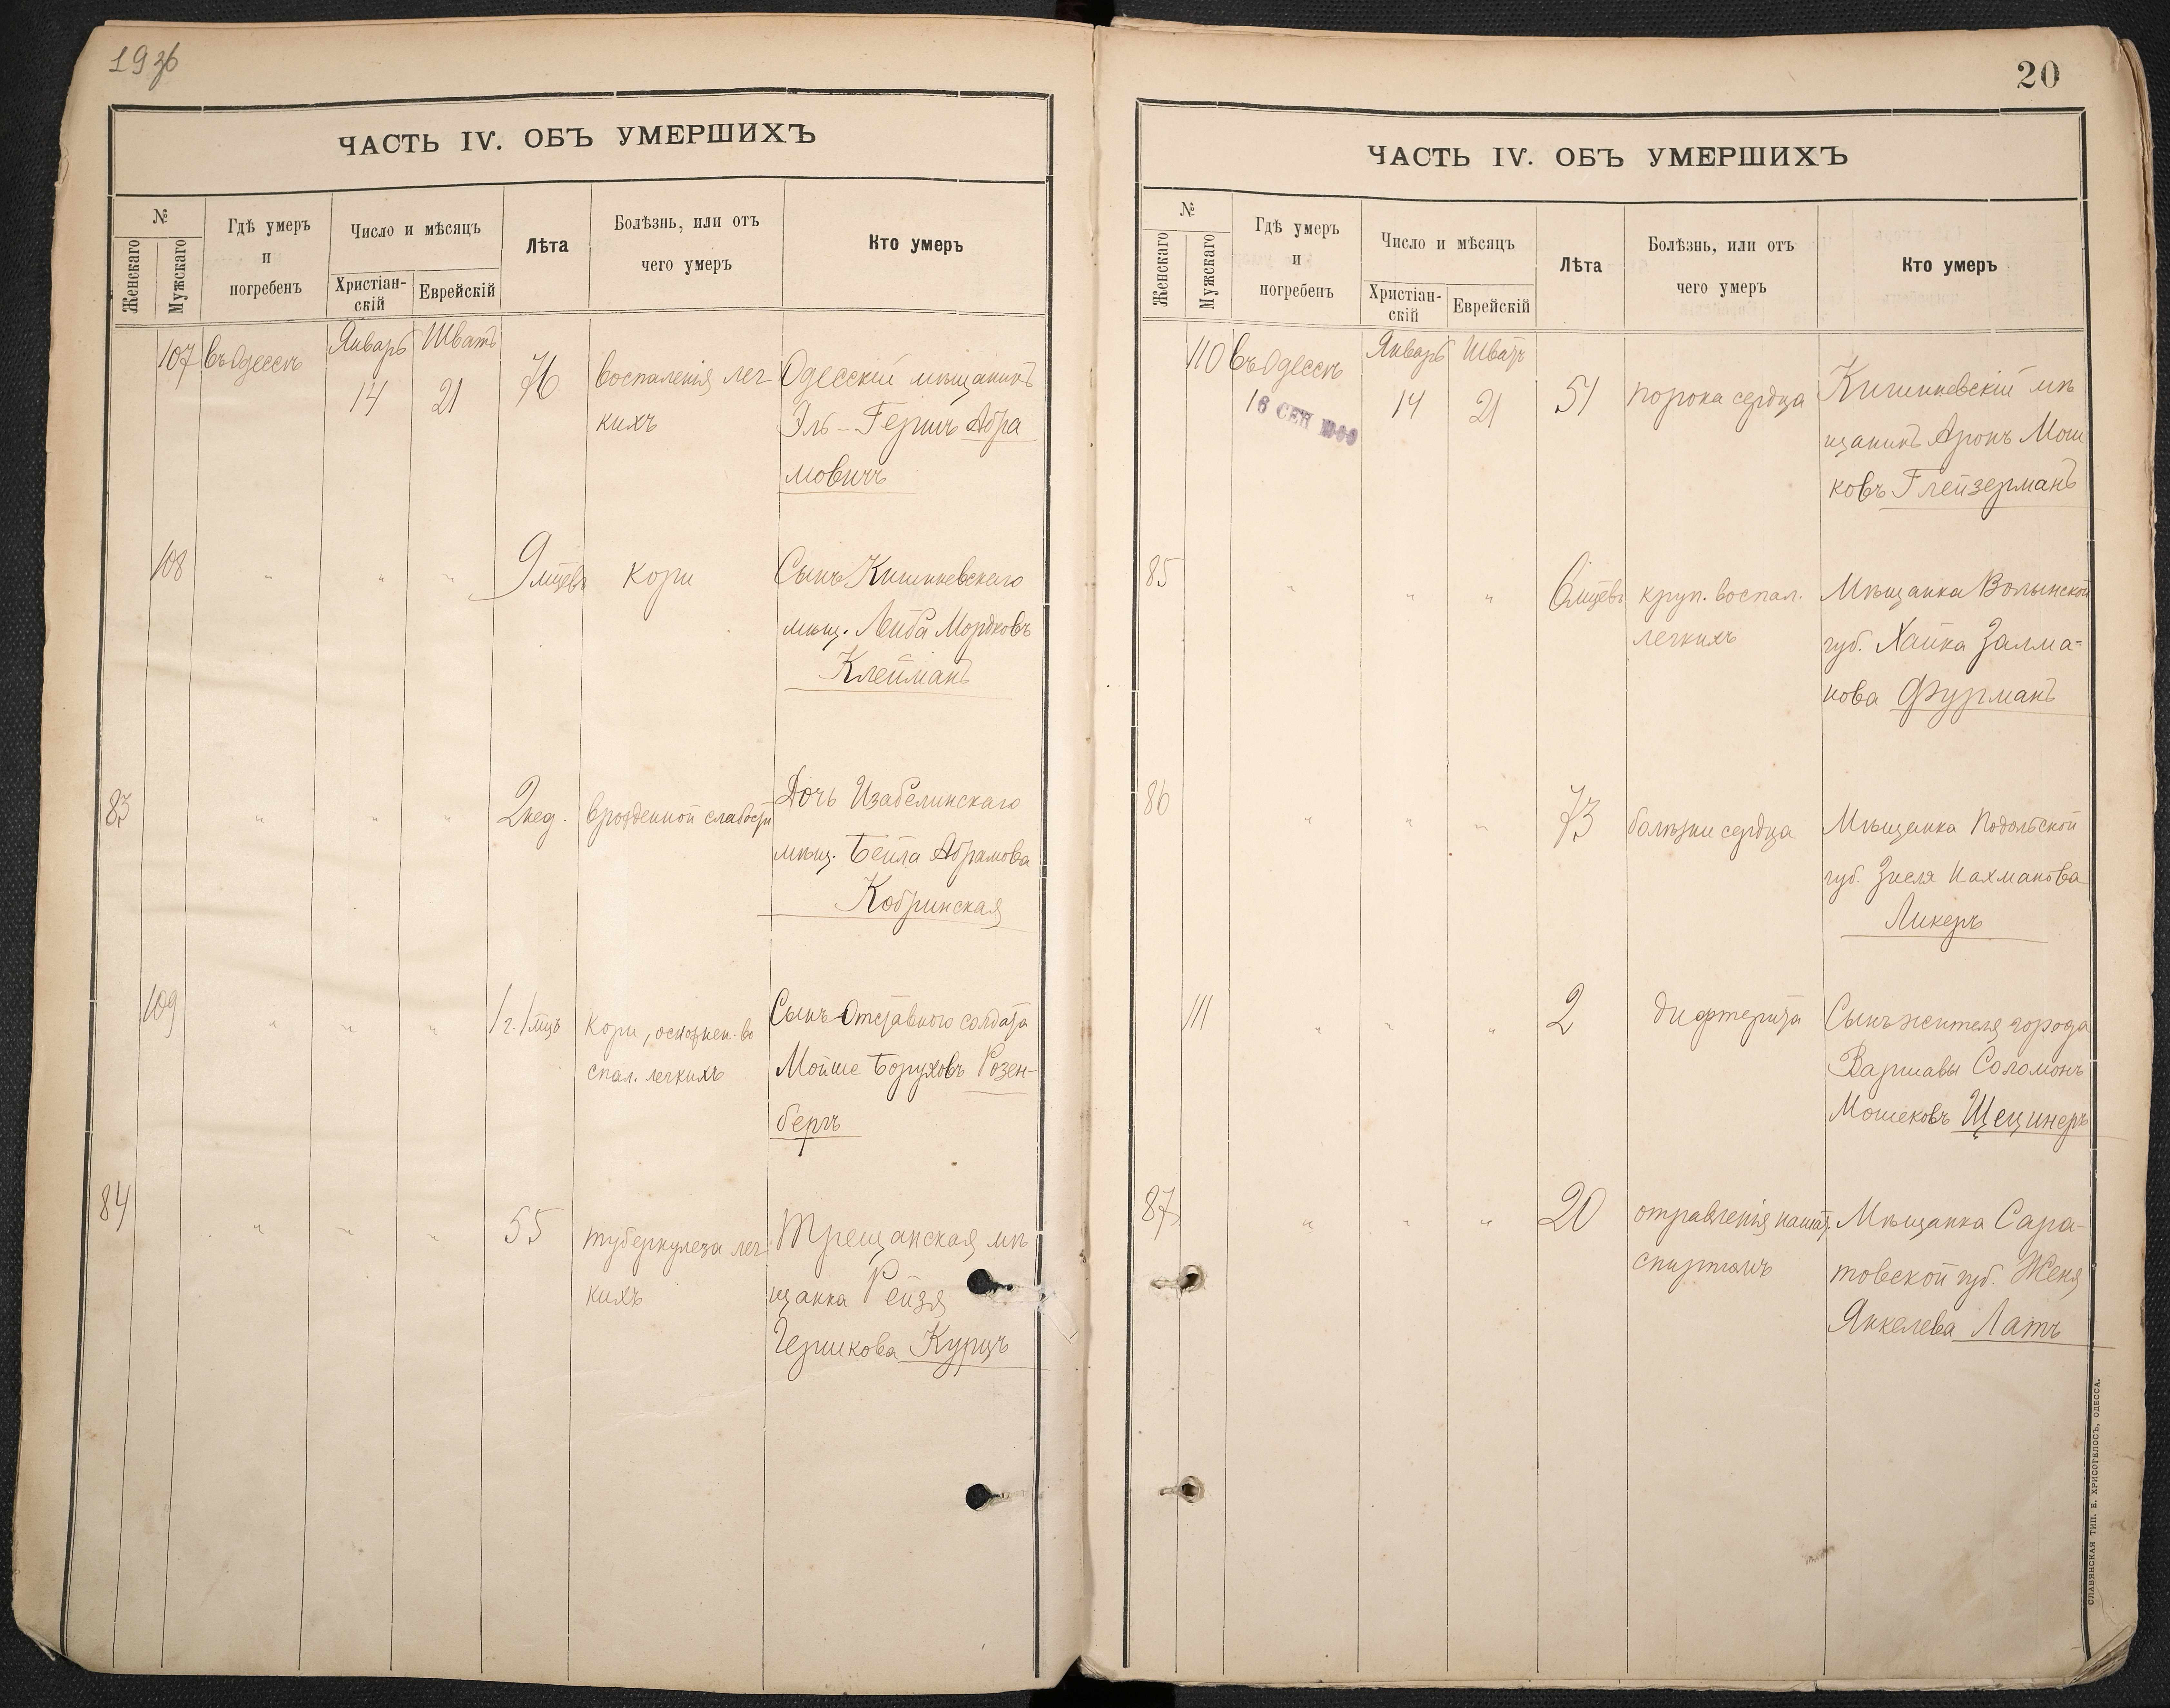 19 об
ЧАСТЬ IV. ОБЪ УМЕРШИХЪ
№
Женскаго
Мужскаго
Гдѣ умеръ
и
погребенъ
Число и мѣсяцъ
Христіан-
скій
Еврейскій
Лѣта
Болѣзнь, или отъ
чего умеръ
Кто умеръ
107 въ Одессѣ Январь 14 Шватъ 21 76 воспаленія лег Одесскій мѣщанинъ
кихъ Эль-Гершъ Абра
мовичъ
108 " " " 9 мцевъ кори Сынъ Кишиневскаго
мѣщ. Лейба Мордковъ
Клейманъ
83 " " " 2 нед. врожденной слабости Дочь Изабелинскаго
мѣщ. Бейла Абрамова
Кобринская
109 " " " 1 г. 1 мцъ кори, осложнен. во Сынъ Отставного солдата
спал. легкихъ Мойше Боруховъ Розен-
бергъ
84 " " " 55 туберкулеза лег Трещанская мѣ
кихъ щанка Рейзя
Гершкова Курцъ
20
ЧАСТЬ IV. ОБЪ УМЕРШИХЪ
№
Женскаго
Мужскаго
Гдѣ умеръ
и
погребенъ
Число и мѣсяцъ
Христіан-
скій
Еврейскій
Лѣта
Болѣзнь, или отъ
чего умеръ
Кто умеръ
110 въ Одессѣ Январь 14 Шватъ 21 51 порока сердца Кишиневскій мѣ
16 СЕН щанинъ Аронъ Мош
ковъ Глейзерманъ
85 " " " 6 мцевъ круп. воспал. Мѣщанка Волынской
легкихъ губ. Хайка Залма-
нова Фурманъ
86 " " " 73 болѣзни сердца Мѣщанка Подольской
губ. Зисля Нахманова
Ликеръ
111 " " " 2 дифтерита Сынъ жителя города
Варшавы Соломонъ
Мошековъ Щецинеръ
87 " " " 20 отравленія нашат. Мѣщанка Сара-
спиртомъ товской губ. Женя
Янкелева Латъ
СЛАВЯНСКАЯ ТИП. Е. ХРИСОГЕЛОСЪ, ОДЕССА.